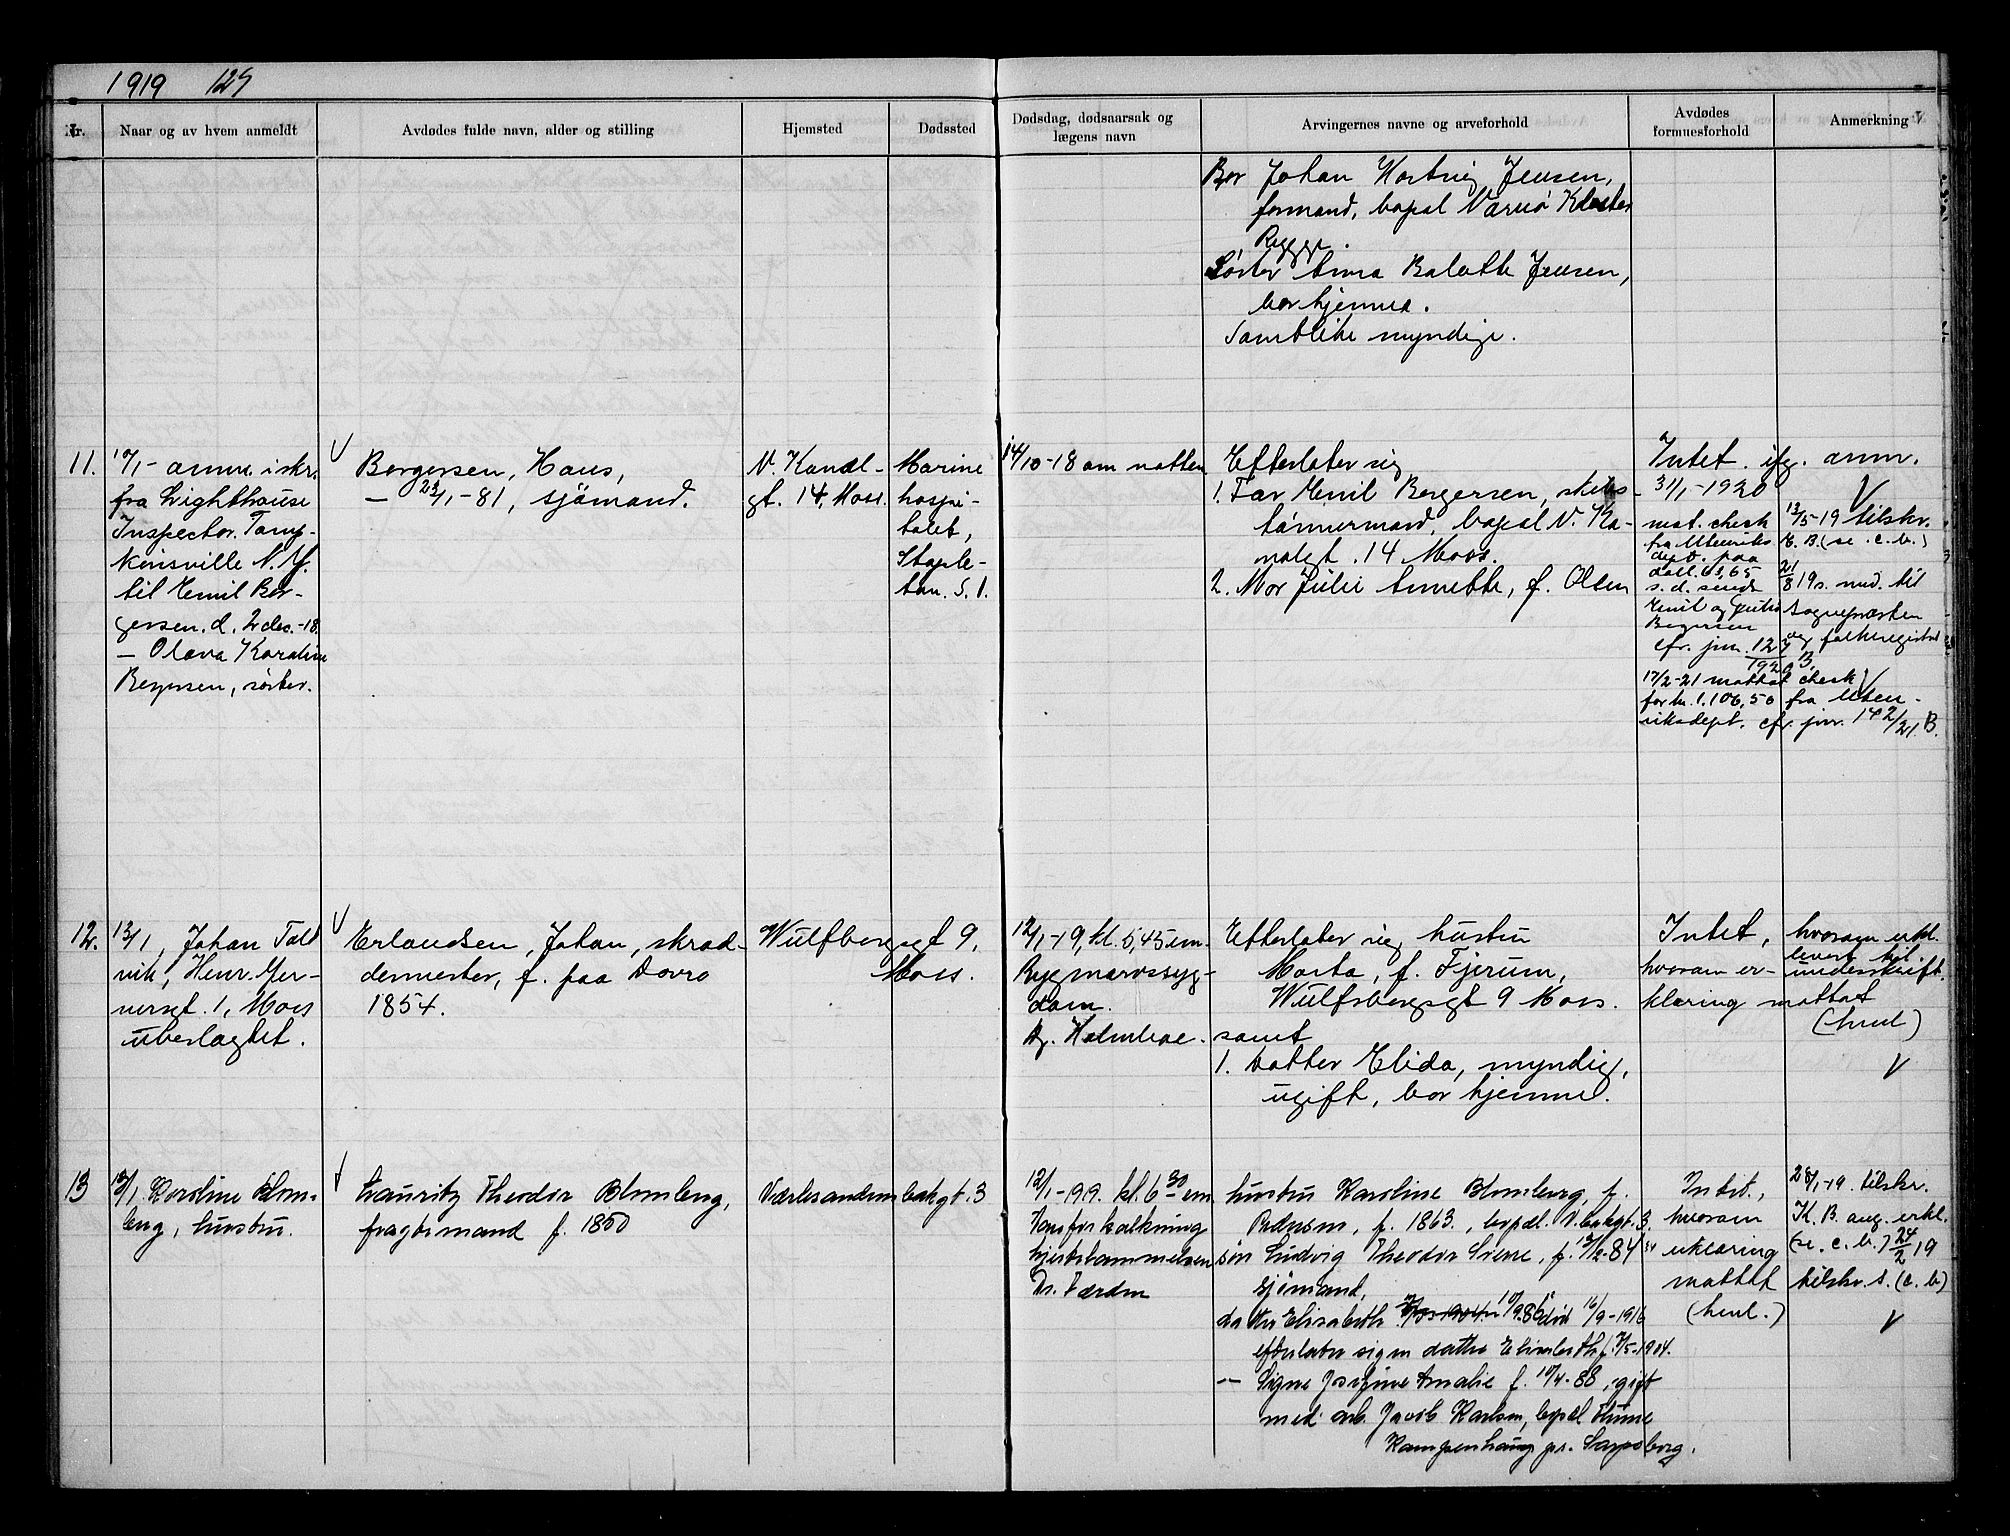 1919 129
Nr.
Naar og av hvem anmeldt
Avdødes fulde navn, alder og stilling
Hjemsted
Dødssted
Dødsdag, dødsaarsak og
lægens navn
Arvingernes navne og arveforhold
Avdødes
formuesforhold
Anmerkning
Bror Johan Hartvig Jensen,
formand, bopæl Værnø Kloster
Rygge.
Søster Anna Jensen,
bor hjemme.
Samtlike myndige.
11.
anm. i skr.
fra Lighthouse
Inspector. Tomp-
kinsville N.Y.
til Emil Ber-
gersen. d. 2 dec.-18.
— Olava Karoline
Bergersen, søster.
Bergersen, Hans,
— 23/1-81, sjömand.
V. Kanal-
gt. 14, Moss.
Marine
hospi-
talet,
Staple-
ton. S.I.
14/10-18 om natten
Efterlater sig
1. Far Emil Bergersen, skibs-
tømmermand, bopæl V. Ka-
nalgt. 14 Moss.
2. Mor Julie Annette, f. Olsen
Intet. ifg. anm.
31/1-1920
mot. check
fra Utenriks
dept. paa
doll. 65
s.d. sendt
Emil og Julie
Bergersen
cfr. jnr. 127/1920 B.
17/2-21 mottat check
for kr. 1.106,50 fra Uten-
riksdept. cfr. jnr. 142/21 B.
13/5-19 tilskr.
E.B. (se c.b.)
21/8 19 s. med. til
sogneprästen
og folkeregistret
12.
13/1, Johan Told
vik, Henr. Ger-
nersgt. 1, Moss
ubeslagtet.
Erlandsen, Johan, skræd-
dermester, f. paa Dovre
1854.
Wulfsbergsgt 9,
Moss.
12/1-19, kl. 5,45 em.
Rygmarvssyg-
dom.
Dr. Holmboe.
Efterlater sig hustru
Marta, f. Fjerum,
Wulfsbergsgt 9 Moss.
samt
1. Datter Elida, myndig,
ugift, bor hjemme.
Intet,
hvorom er-
klæring mottat
hvorom erkl.
levert til
underskrift.
(henl)
13
13/1 Karoline Blom-
berg, hustru.
Lauritz Theodor Blomberg,
fragtemand f. 1850
Værlesanden bakgt. 3
12/1-1919. kl. 6 30 em
Aareforkalkning
hjertelammelsen
Dr. Færden
hustru Karoline Blomberg, f.
f. 1863., bopæl. V. bakgt. 3.
søn Ludvig Theodor f. 13/2-84
sjömand,
datter Elisabeth død 16/9-1916
efterlater sig en datter Elisabeth f. 7/5-1904.
— Signe Josefine Amalie f. 10/4-88, gift
med arb. Jacob Karlsen, bopæl
Kampenhaug pr. Sarpsborg.
Intet,
hvorom
erklæring
mottat
(henl.)
28/1-19. tilskr.
K.B. ang. erkl.
(se. c.b.) 24/2 19
tilskr. s. (c.b)